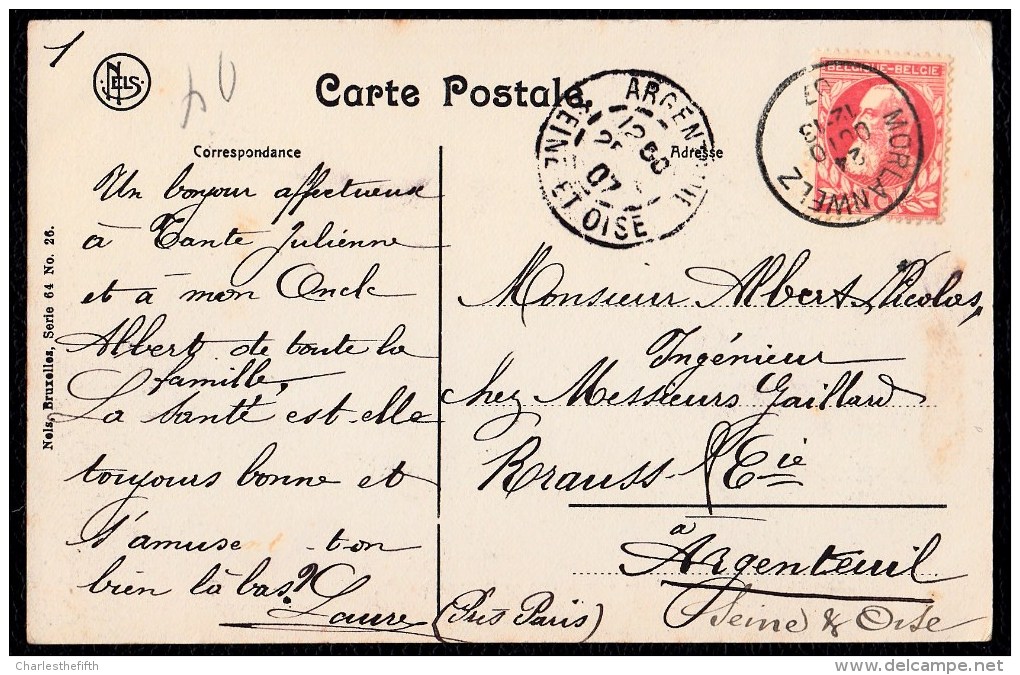 1
NELS
Carte Postale
Correspondance
Adresse
Nels, Bruxelles, Serie 64 No. 26.
Un bonjour affectueux
à Tante Julienne
et à mon Oncle
Albert de toute la
famille,
La santé est-elle
toujours bonne et
s'amuse-t-on
bien là bas?
Laure
ARGENTEUIL
12 50
25
07
SEINE ET OISE
BELGIQUE-BELGIE
MORLANWELZ
24
OCT
12-13
07
Monsieur Albert Nicolas,
Ingénieur
chez Messieurs Gaillard
Krauss & Cie
à
Argenteuil
(Près Paris)
Seine & Oise
Charlesthefifth
www.delcampe.net